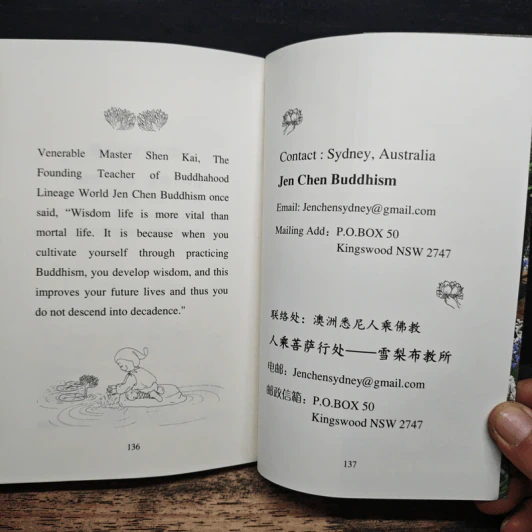 Venerable Master Shen Kai, The
Founding Teacher of Buddhahood
Lineage World Jen Chen Buddhism once
said, “Wisdom life is more vital than
mortal life. It is because when you
cultivate yourself through practicing
Buddhism, you develop wisdom, and this
improves your future lives and thus you
do not descend into decadence.”
136
Contact : Sydney, Australia
Jen Chen Buddhism
Email: Jenchensydney@gmail.com
Mailing Add：P.O.BOX 50
Kingswood NSW 2747
联络处：澳洲悉尼人乘佛教
人乘菩萨行处——雪梨布教所
电邮：Jenchensydney@gmail.com
邮政信箱：P.O.BOX 50
Kingswood NSW 2747
137